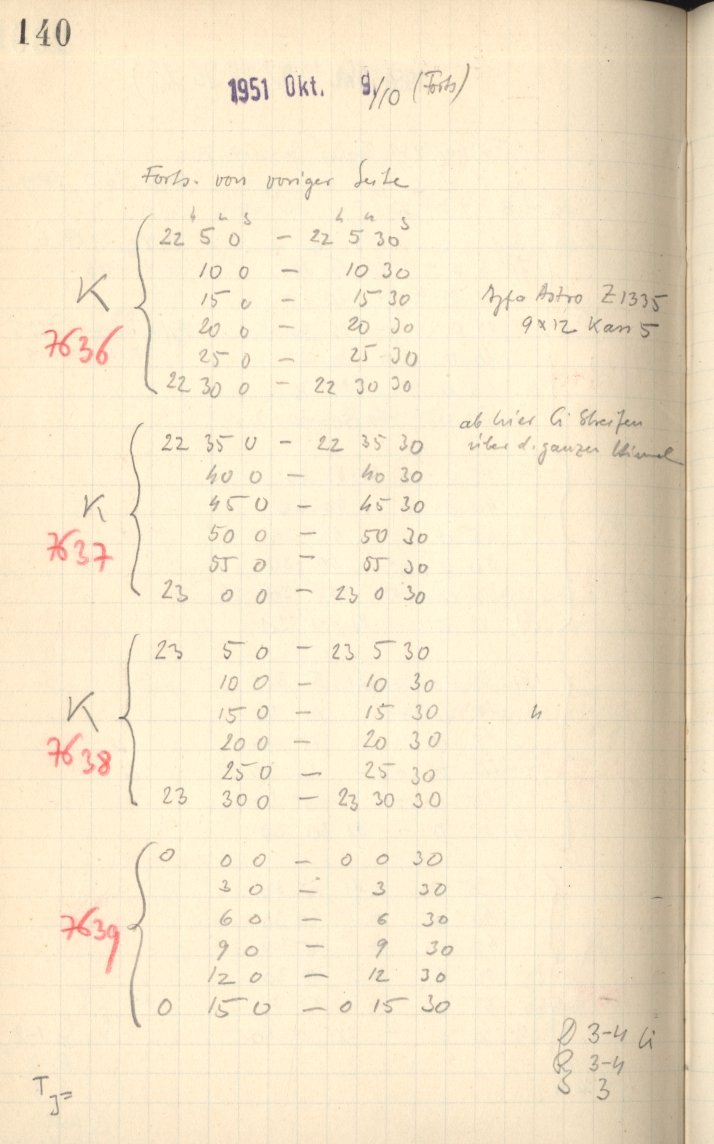 140
1951 Okt. 9./10 (Forts)
Forts. von voriger Seite
h m s h m s
22 5 0 – 22 5 30
10 0 – 10 30
K 15 0 – 15 30 Agfa Astro Z1335
7636 20 0 – 20 30 9x12 Kass 5
25 0 – 25 30
22 30 0 – 22 30 30
ab hier Ci Streifen
22 35 0 – 22 35 30 über d. ganzen Himmel
40 0 – 40 30
K 45 0 – 45 30
7637 50 0 – 50 30
55 0 – 55 30
23 0 0 – 23 0 30
23 5 0 – 23 5 30
10 0 – 10 30
K 15 0 – 15 30
7638 20 0 – 20 30
25 0 – 25 30
23 30 0 – 23 30 30
0 0 0 – 0 0 30
3 0 – 3 30
7639 6 0 – 6 30
9 0 – 9 30
12 0 – 12 30
0 15 0 – 0 15 30
D 3-4 Ci
R 3-4
S 3
T
J=